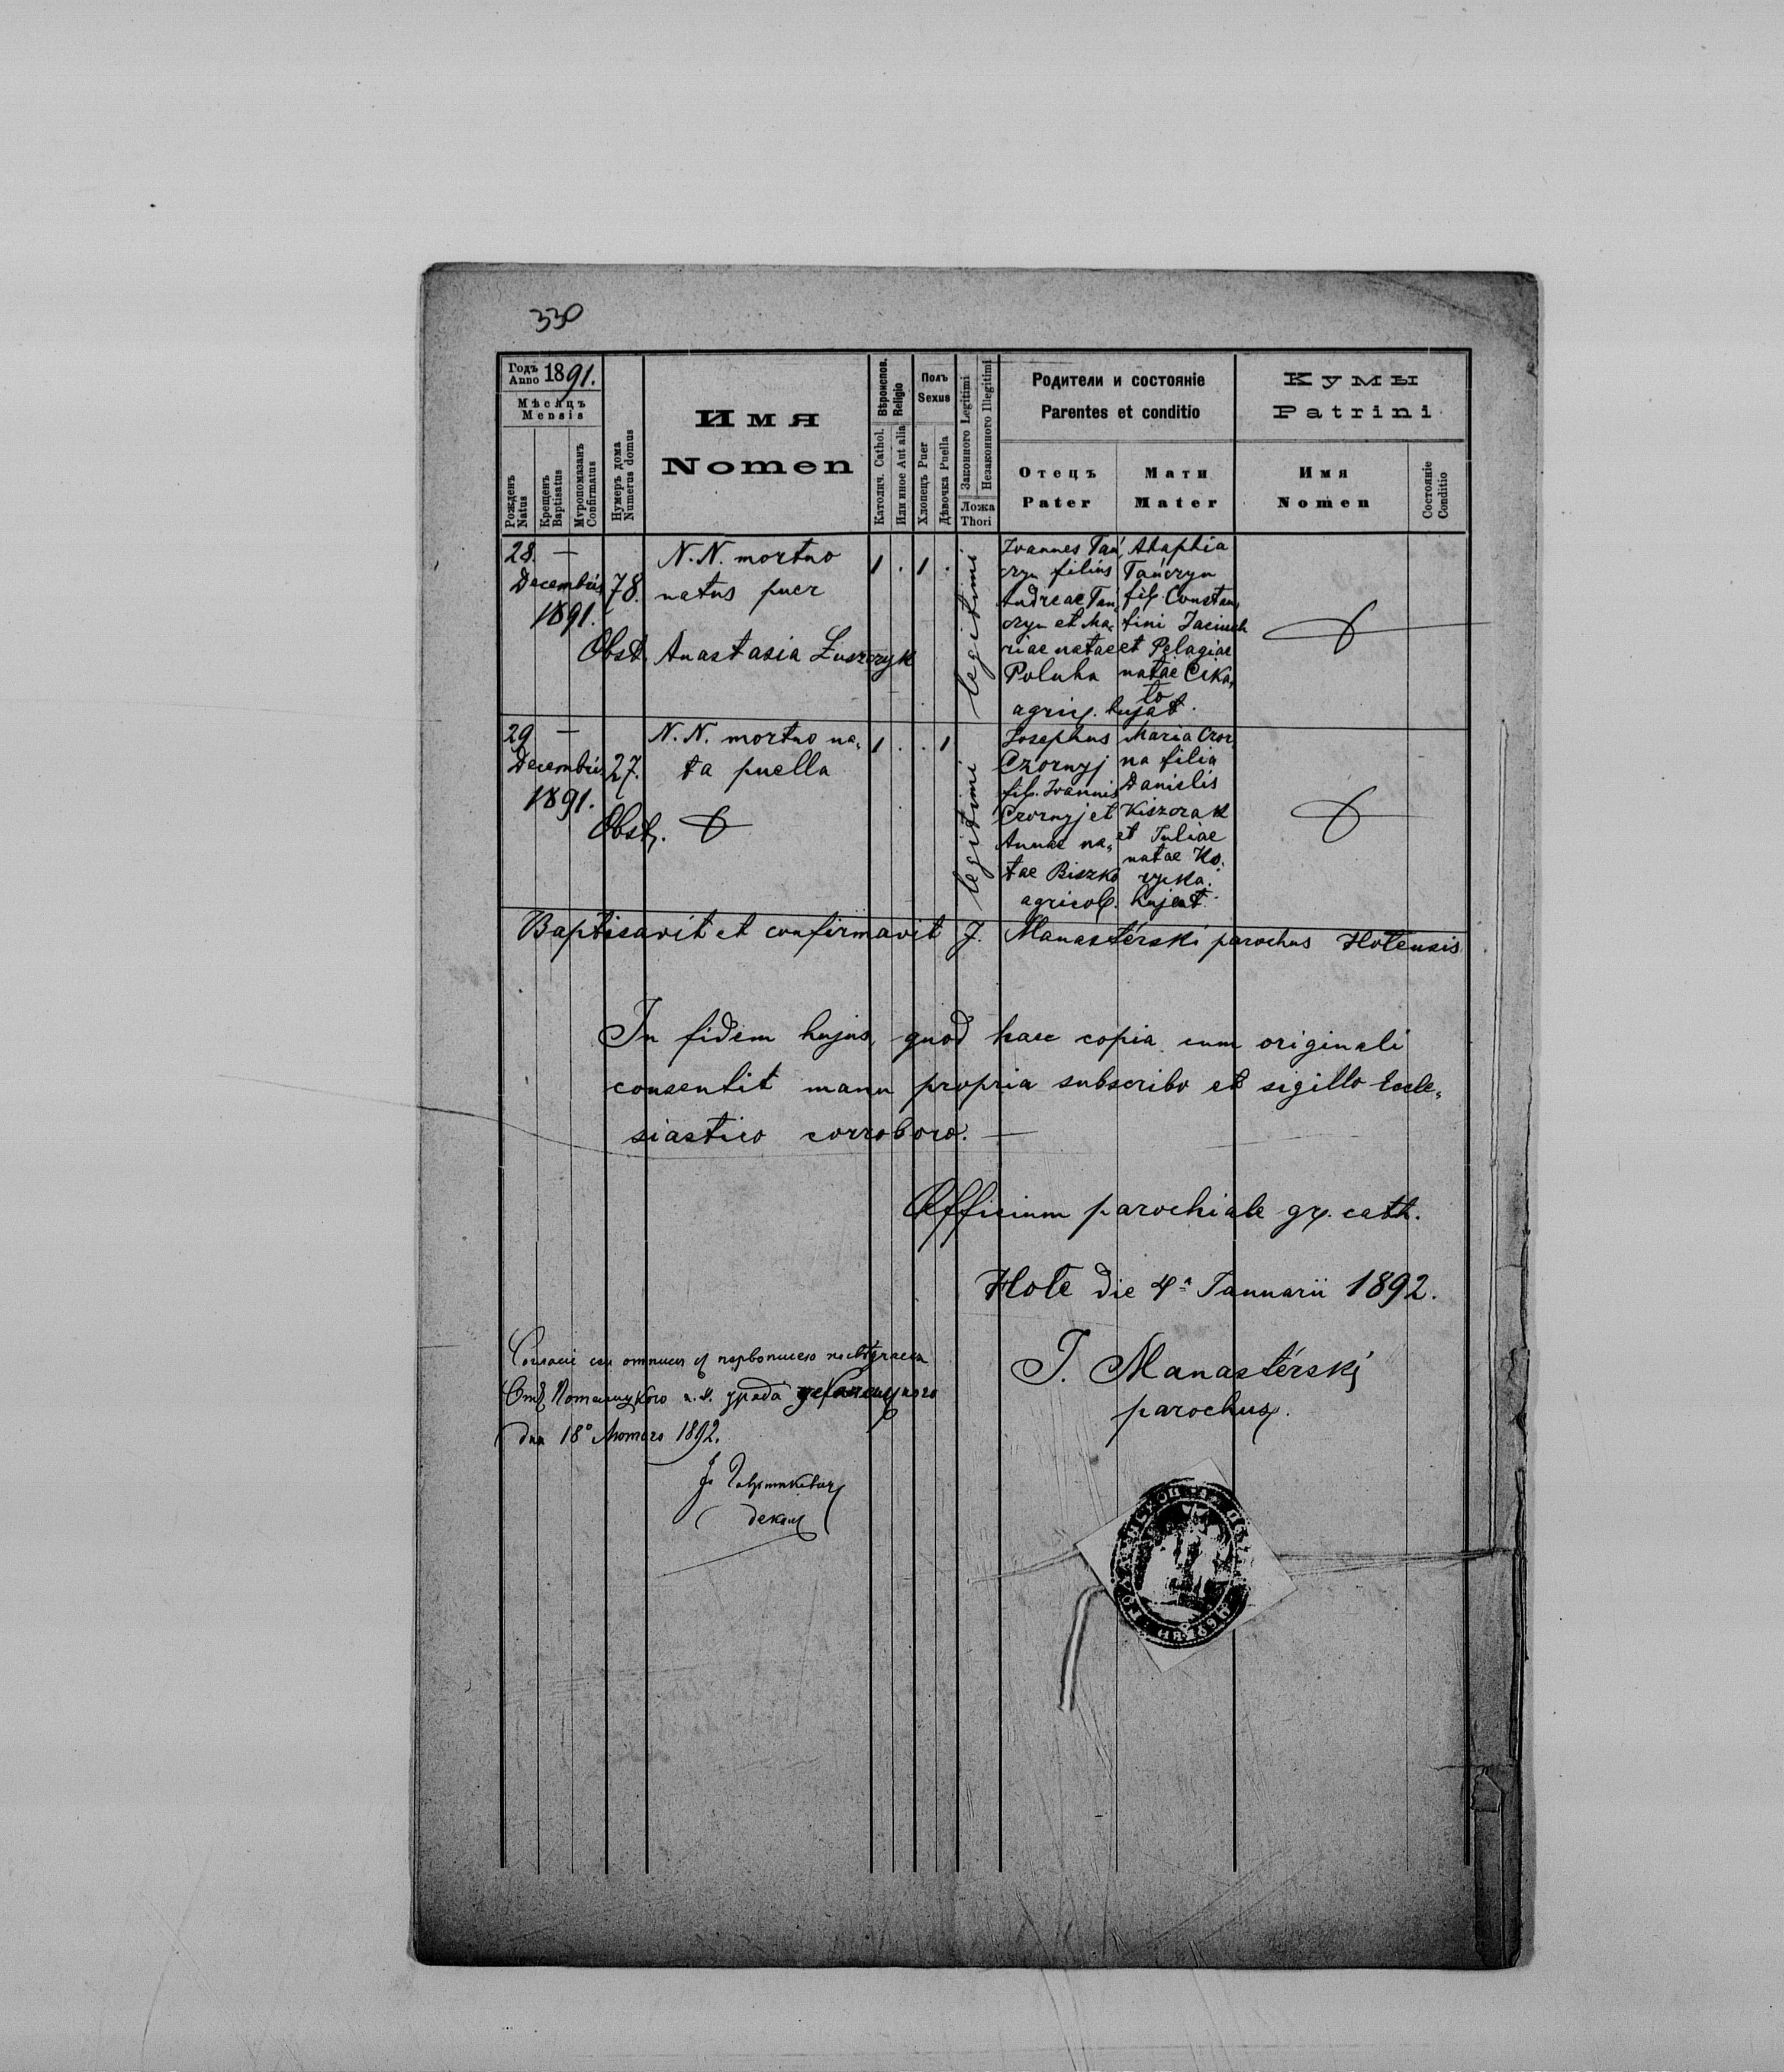 330
Годъ
Anno 1891.
Мѣсяцъ
Mensis
Рожденъ
Natus
Крещенъ
Baptisatus
Мѵропомазанъ
Confirmatus
Нумеръ дома
Numerus domus
Имя
Nomen
Вѣроиспов.
Religio
Католич. Cathol.
Или иное Aut alia
Полъ
Sexus
Хлопецъ Puer
Дѣвочка Puella
Законного Legitimi
Незаконного Illegitimi
Ложа
Thori
Родители и состояніе
Parentes et conditio
Отецъ
Pater
Мати
Mater
Кумы
Patrini
Имя
Nomen
Состояніе
Conditio
28. —
Decembris
1891.
78.
N. N. mortuo
natus puer
Obst. Anastasia Łuszczyk
1 . 1 .
legitimi
Ioannes Tań,
czyn filius
Andreae Tań,
czyn et Ma,
riae natae
Poluha
agric. hujat.
Ahaphia
Tańczyn
fil. Constan,
tini Jaciuch
et Pelagiae
natae Cika,
to
29 —
Decembris
1891.
27.
N. N. mortuo na,
ta puella
Obst.
1 . . 1
legitimi
Josephus
Czornyj
fil. Ioannis
Czornyj et
Annae na,
tae Biszko
agricol. hujat.
Maria Czor,
na filia
Danielis
Kiszczak
et Juliae
natae Ko,
zycka.
Baptisavit et confirmavit J. Manastérski parochus Hotensis
In fidem hujus, quod haec copia cum originali
consentit manu propria subscribo et sigillo Eccle,
siastico corroboro. —
Officium parochiale gr. cath.
Hole die 4ª Januarii 1892.
J. Manastérskj
parochus.
отпись съ первописею
Отъ Потелицкого г. к. уряда деканального
дня 18º Лютого 1892.
декан